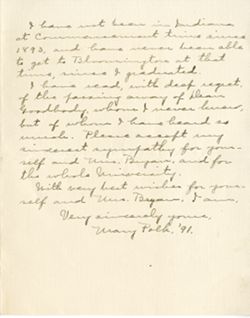 I have not been in Indiana
at Commencement time since
1893, and have never been able
to get to Bloomington at that
time, since I graduated.
I have read, with deep regret,
of the passing away of Dean
Goodbody, whom I never knew,
but of whom I have heard so
much. Please accept my
sincerest sympathy for your-
self and Mrs. Bryan, and for
the whole University.
With very best wishes for your-
self and Mrs. Bryan, I am,
Very sincerely yours,
Mary Polk, '91.